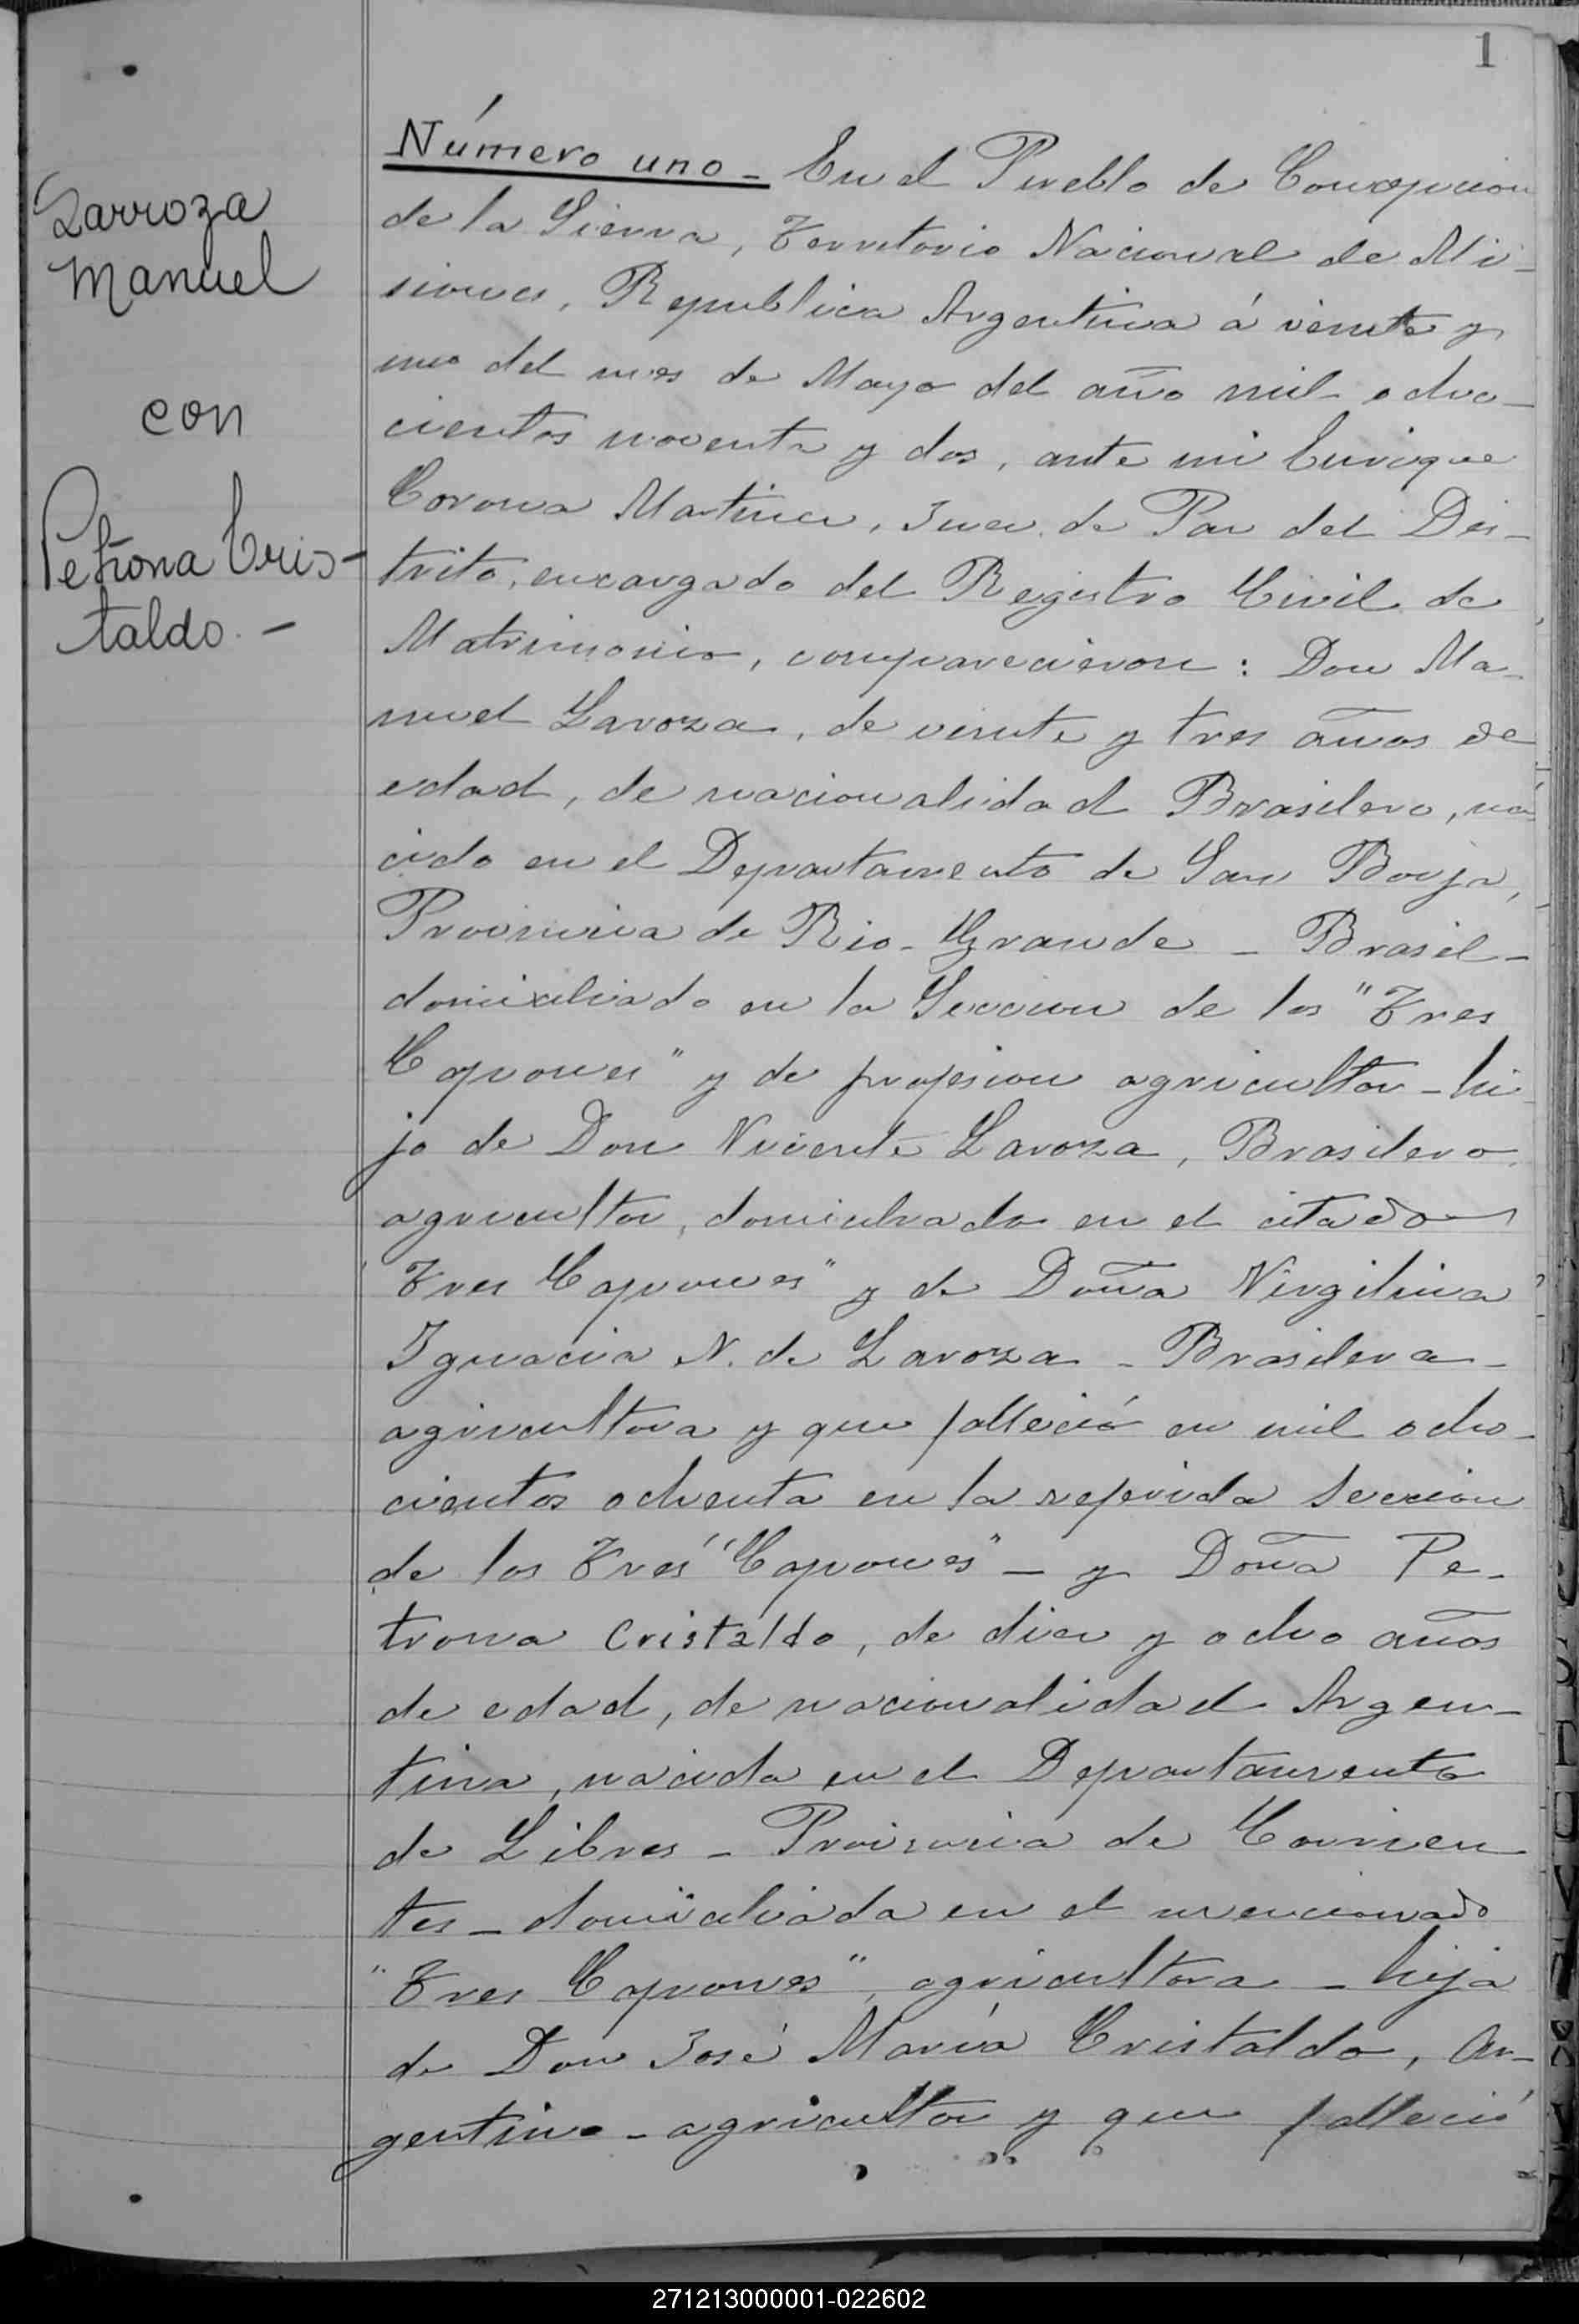 1
Larroza
Manuel
con
Petrona Cris-
taldo. -
Número uno - En el Pueblo de Concepcion
de la Sierra, Territorio Nacional de Mi-
siones, Republica Argentina á veinte y
uno del mes de Mayo del año mil ocho-
cientos noventa y dos, ante mi Enrique
Corona Martinez, Juez de Paz del Dis-
trito, encargado del Registro Civil de
Matrimonio, comparecieron: Don Ma-
nuel Laroza, de veinte y tres años de
edad, de nacionalidad Brasilero, na
cido en el Departamento de San Borja,
Provincia de Rio-Grande - Brasil -
domiciliado en la Seccion de los "Tres
Capones" y de profesion agricultor - hi
jo de Don Vicente Laroza, Brasilero,
agricultor, domiciliado en el citado
"Tres Capones" y de Doña Virgilina
Ignacia N. de Laroza - Brasilera -
agricultora y que falleció en mil ocho-
cientos ochenta en la referida Seccion
de los Tres "Capones" - y Doña Pe-
trona Cristaldo, de diez y ocho años
de edad, de nacionalidad Argen-
tina, nacida en el Departamento
de Libres - Provincia de Corrien
tes - domiciliada en el mencionado
"Tres Capones", agricultora - hija
de Don José María Cristaldo, Ar-
gentino - agricultor y que falleció
271213000001-022602